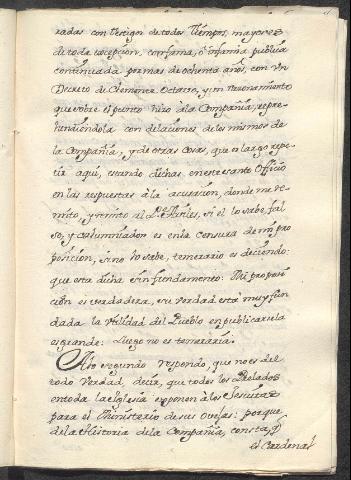 radas con testigos de todos tiempos, mayores
de toda excepcion, con fama, ó infamia publica
continuada por mas de ochenta años, con un
Decreto de Clemente Octavo, y un razonamiento
que sobre el punto hizo a la Compañia, repre-
hendiendola con delaciones de los mismos de
la Compañia, y de otras cosas, que es largo repe-
tir aqui, estando dichas en este santo Officio
en las respuestas â la acusacion, donde me re-
mito, y remito al Pe. si el lo sabe, fal
so, y calumniador es en la censura de mi pro
posicion, si no lo sabe, temerario es deciendo:
que esta dicha sin fundamento: Mi proposi
cion es verdadera, su verdad está muy fun
dada la utilidad del Pueblo en publicarsela
es grande: Luego no es temeraria.
A lo segundo respondo, que no es del
todo verdad, decir, que todos los Prelados
en toda la Iglesia exponen a los Jesuitas
para el Ministerio de sus ovejas: porque
de la Historia de la Compañia, consta, q
el Cardenal